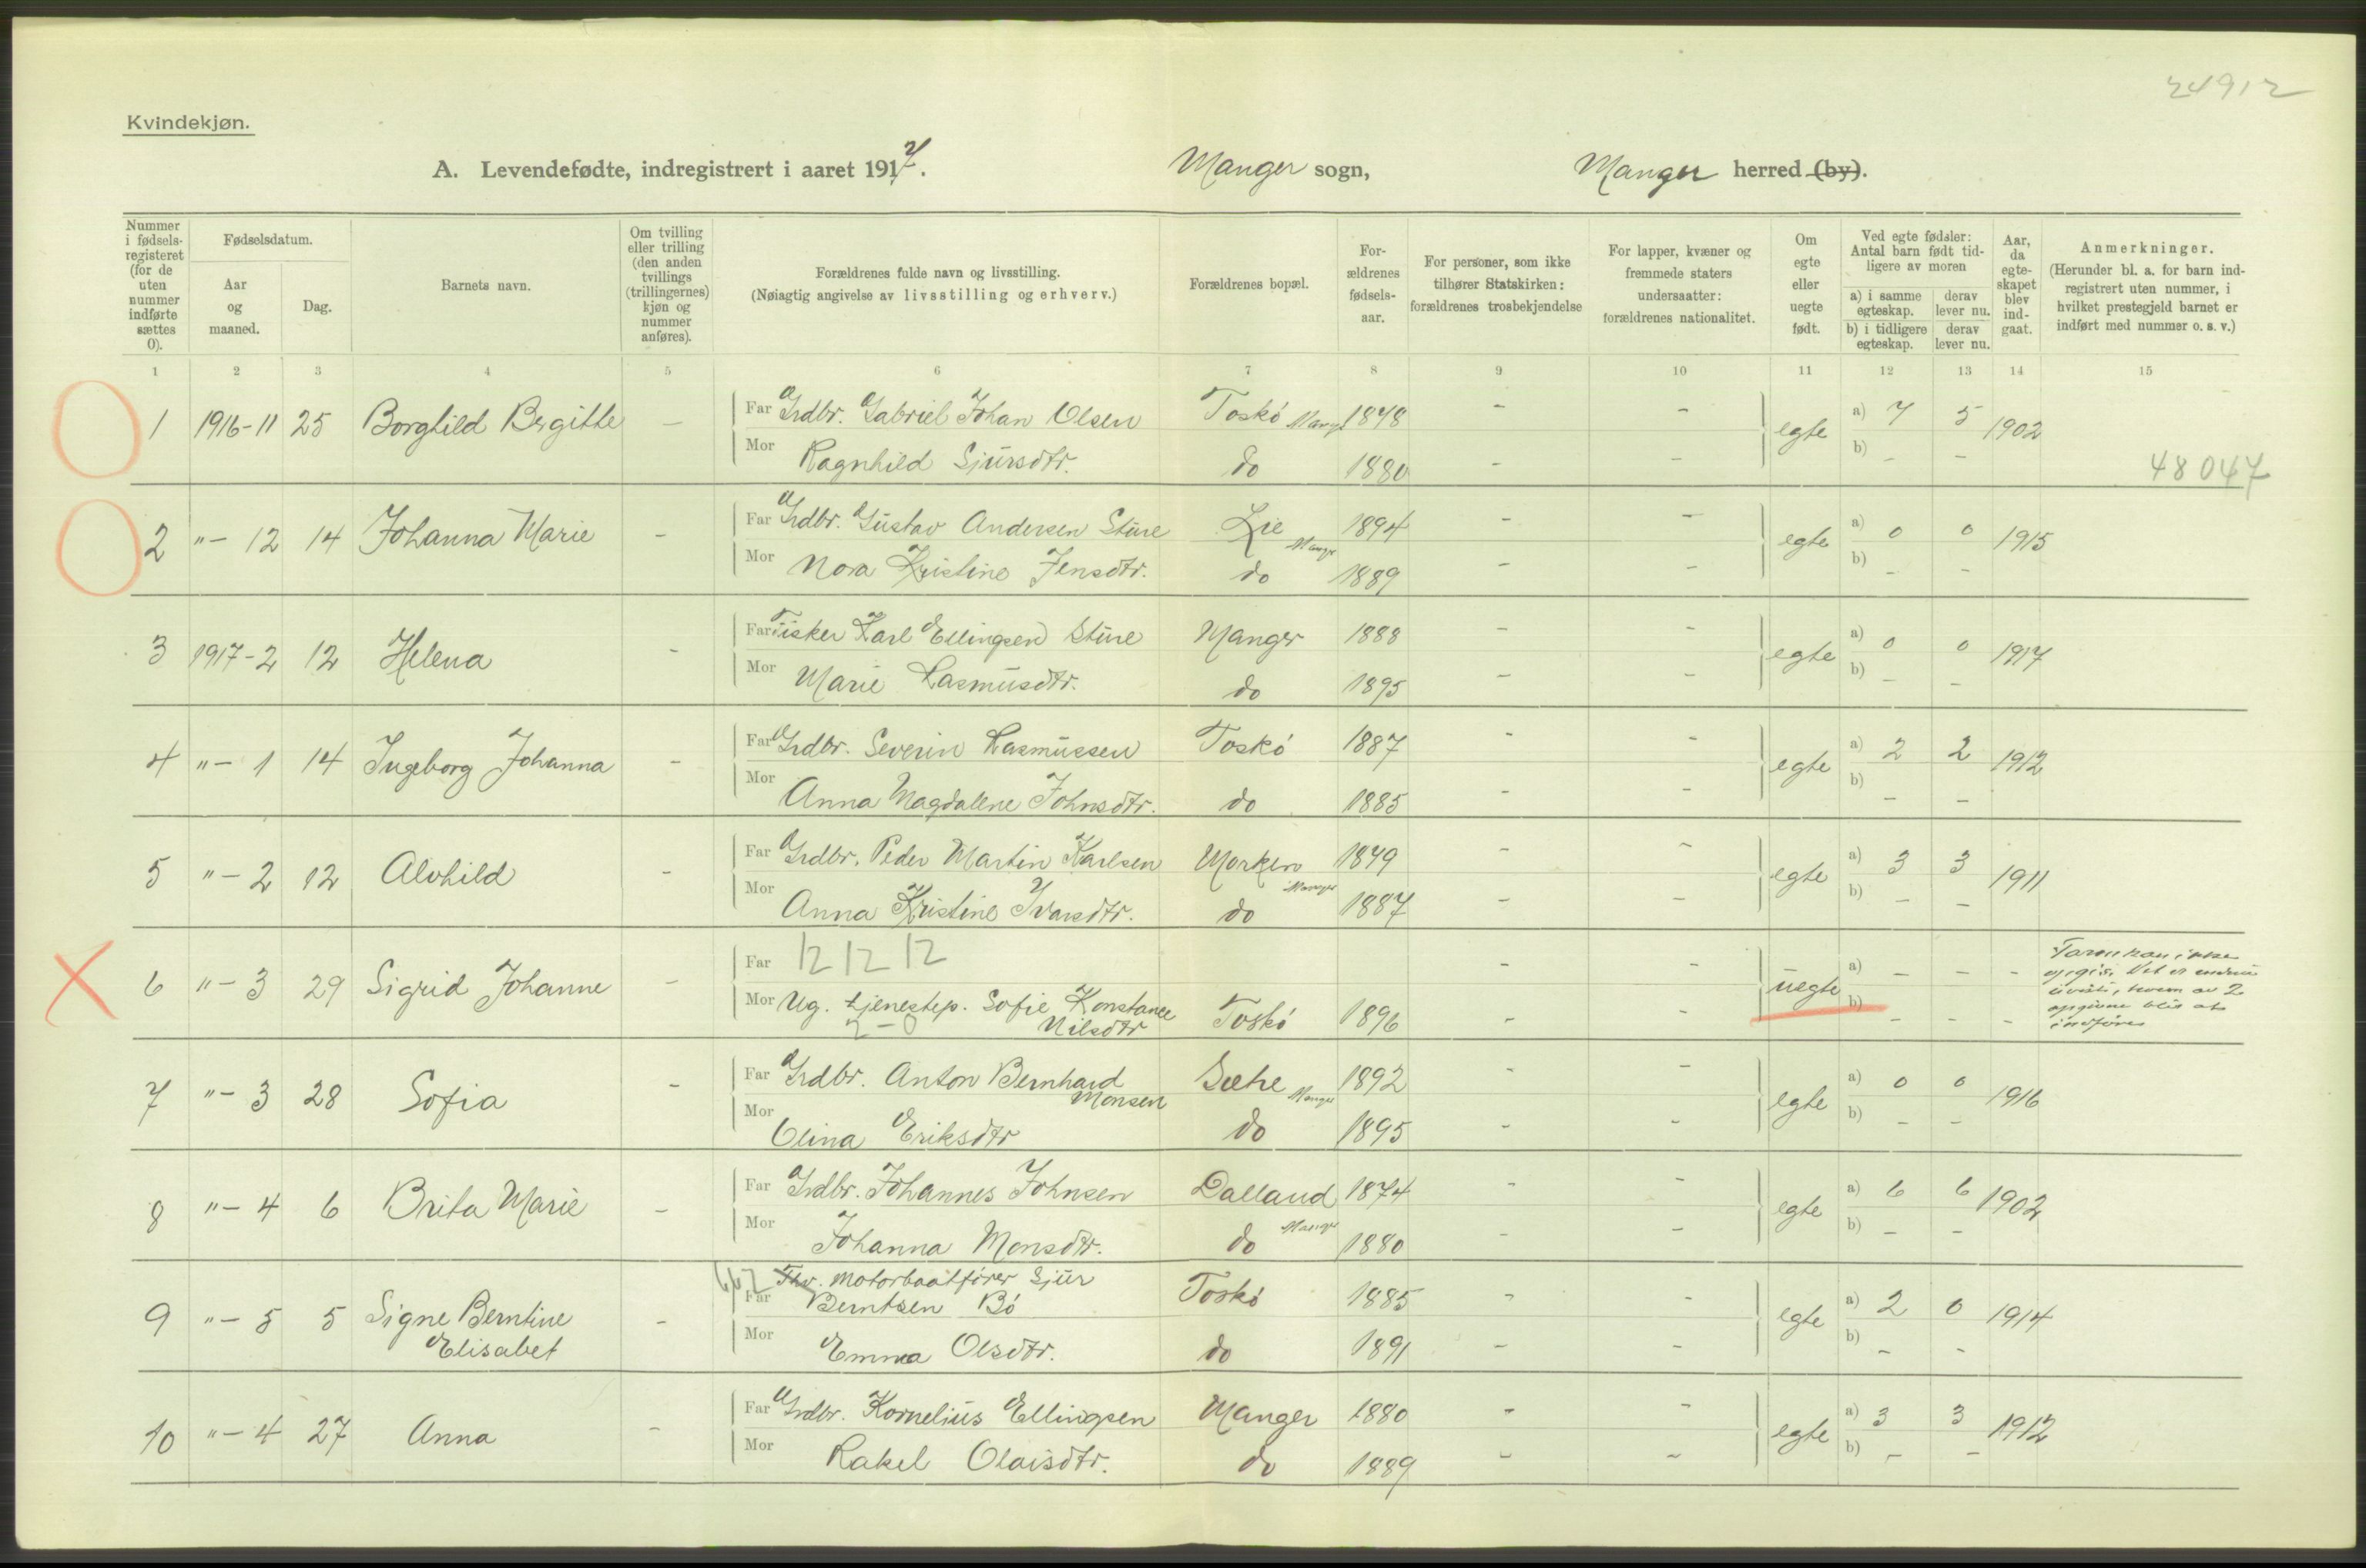 24912
Kvindekjøn.
A. Levendefødte, indregistrert i aaret 1917. Manger sogn, Manger herred (by).
Nummer i fødsels-registeret (for de uten nummer indførte sættes 0). Fødselsdatum. Aar og maaned. Dag. Barnets navn. Om tvilling eller trilling (den anden tvillings (trillingernes) kjøn og nummer anføres). Forældrenes fulde navn og livsstilling. (Nøiagtig angivelse av livsstilling og erhverv.) Forældrenes bopæl. For-ældrenes fødsels-aar. For personer, som ikke tilhører Statskirken: forældrenes trosbekjendelse For lapper, kvæner og fremmede staters undersaatter: forældrenes nationalitet. Om egte eller uegte født. Ved egte fødsler: Antal barn født tid-ligere av moren a) i samme egteskap. derav lever nu. b) i tidligere egteskap. derav lever nu. Aar, da egte-skapet blev ind-gaat. Anmerkninger. (Herunder bl. a. for barn ind-registrert uten nummer, i hvilket prestegjeld barnet er indført med nummer o. s. v.)
1 2 3 4 5 6 7 8 9 10 11 12 13 14 15
1 1916-11 25 Borghild Bergitte - Far Grdbr. Gabriel Johan Olsen Toskö Mang. 1848 - - egte a) 7 5 1902
Mor Ragnhild Sjursdtr. do 1880 - - b) - - 48047
2 "- 12 14 Johanna Marie - Far Grdbr. Gustav Andersen Sture Lie Manger 1894 - - egte a) 0 0 1915
Mor Nora Kristine Jensdtr. do 1889 - - b) - -
3 1917-2 12 Helena - Far Fisker Karl Ellingsen Sture Manger 1888 - - egte a) 0 0 1917
Mor Marie Rasmusdtr. do 1895 - - b) - -
4 "- 1 14 Ingeborg Johanna - Far Grdbr. Severin Rasmussen Toskö 1887 - - egte a) 2 2 1912
Mor Anna Magdalene Johnsdtr. do 1885 - - b) - -
5 "- 2 12 Alvhild - Far Grdbr. Peder Martin Karlsen Morken Manger 1849 - - egte a) 3 3 1911
Mor Anna Kristine Ivarsdtr. do 1887 - - b) - -
6 "- 3 29 Sigrid Johanne - Far 12 12 12 - - uegte a) - - - Faren kan ikke opgis. Det er endnu uvist, hvem av 2 opgivne blir at indföres
Mor Ug. tjenestep. Sofie Konstance Nilsdtr 2-0 Toskö 1896 - - b) - - -
7 "- 3 28 Sofia - Far Grdbr. Anton Bernhard Monsen Sæhe Manger 1892 - - egte a) 0 0 1916
Mor Olina Eriksdtr do 1895 - - b) - -
8 "- 4 6 Brita Marie - Far Grdbr. Johannes Johnsen Dalland Manger 1874 - - egte a) 6 6 1902
Mor Johanna Monsdtr. do 1880 - - b) - -
9 "- 5 5 Signe Berntine Elisabet - Far motorbaatförer Sjur Berntsen Bö Toskö 1885 - - egte a) 2 0 1914
Mor Emma Olsdtr. do 1891 - - b) - -
10 "- 4 27 Anna - Far Grdbr. Kornelius Ellingsen Manger 1880 - - egte a) 3 3 1912
Mor Rakel Olaisdtr. do 1889 - - b) - -